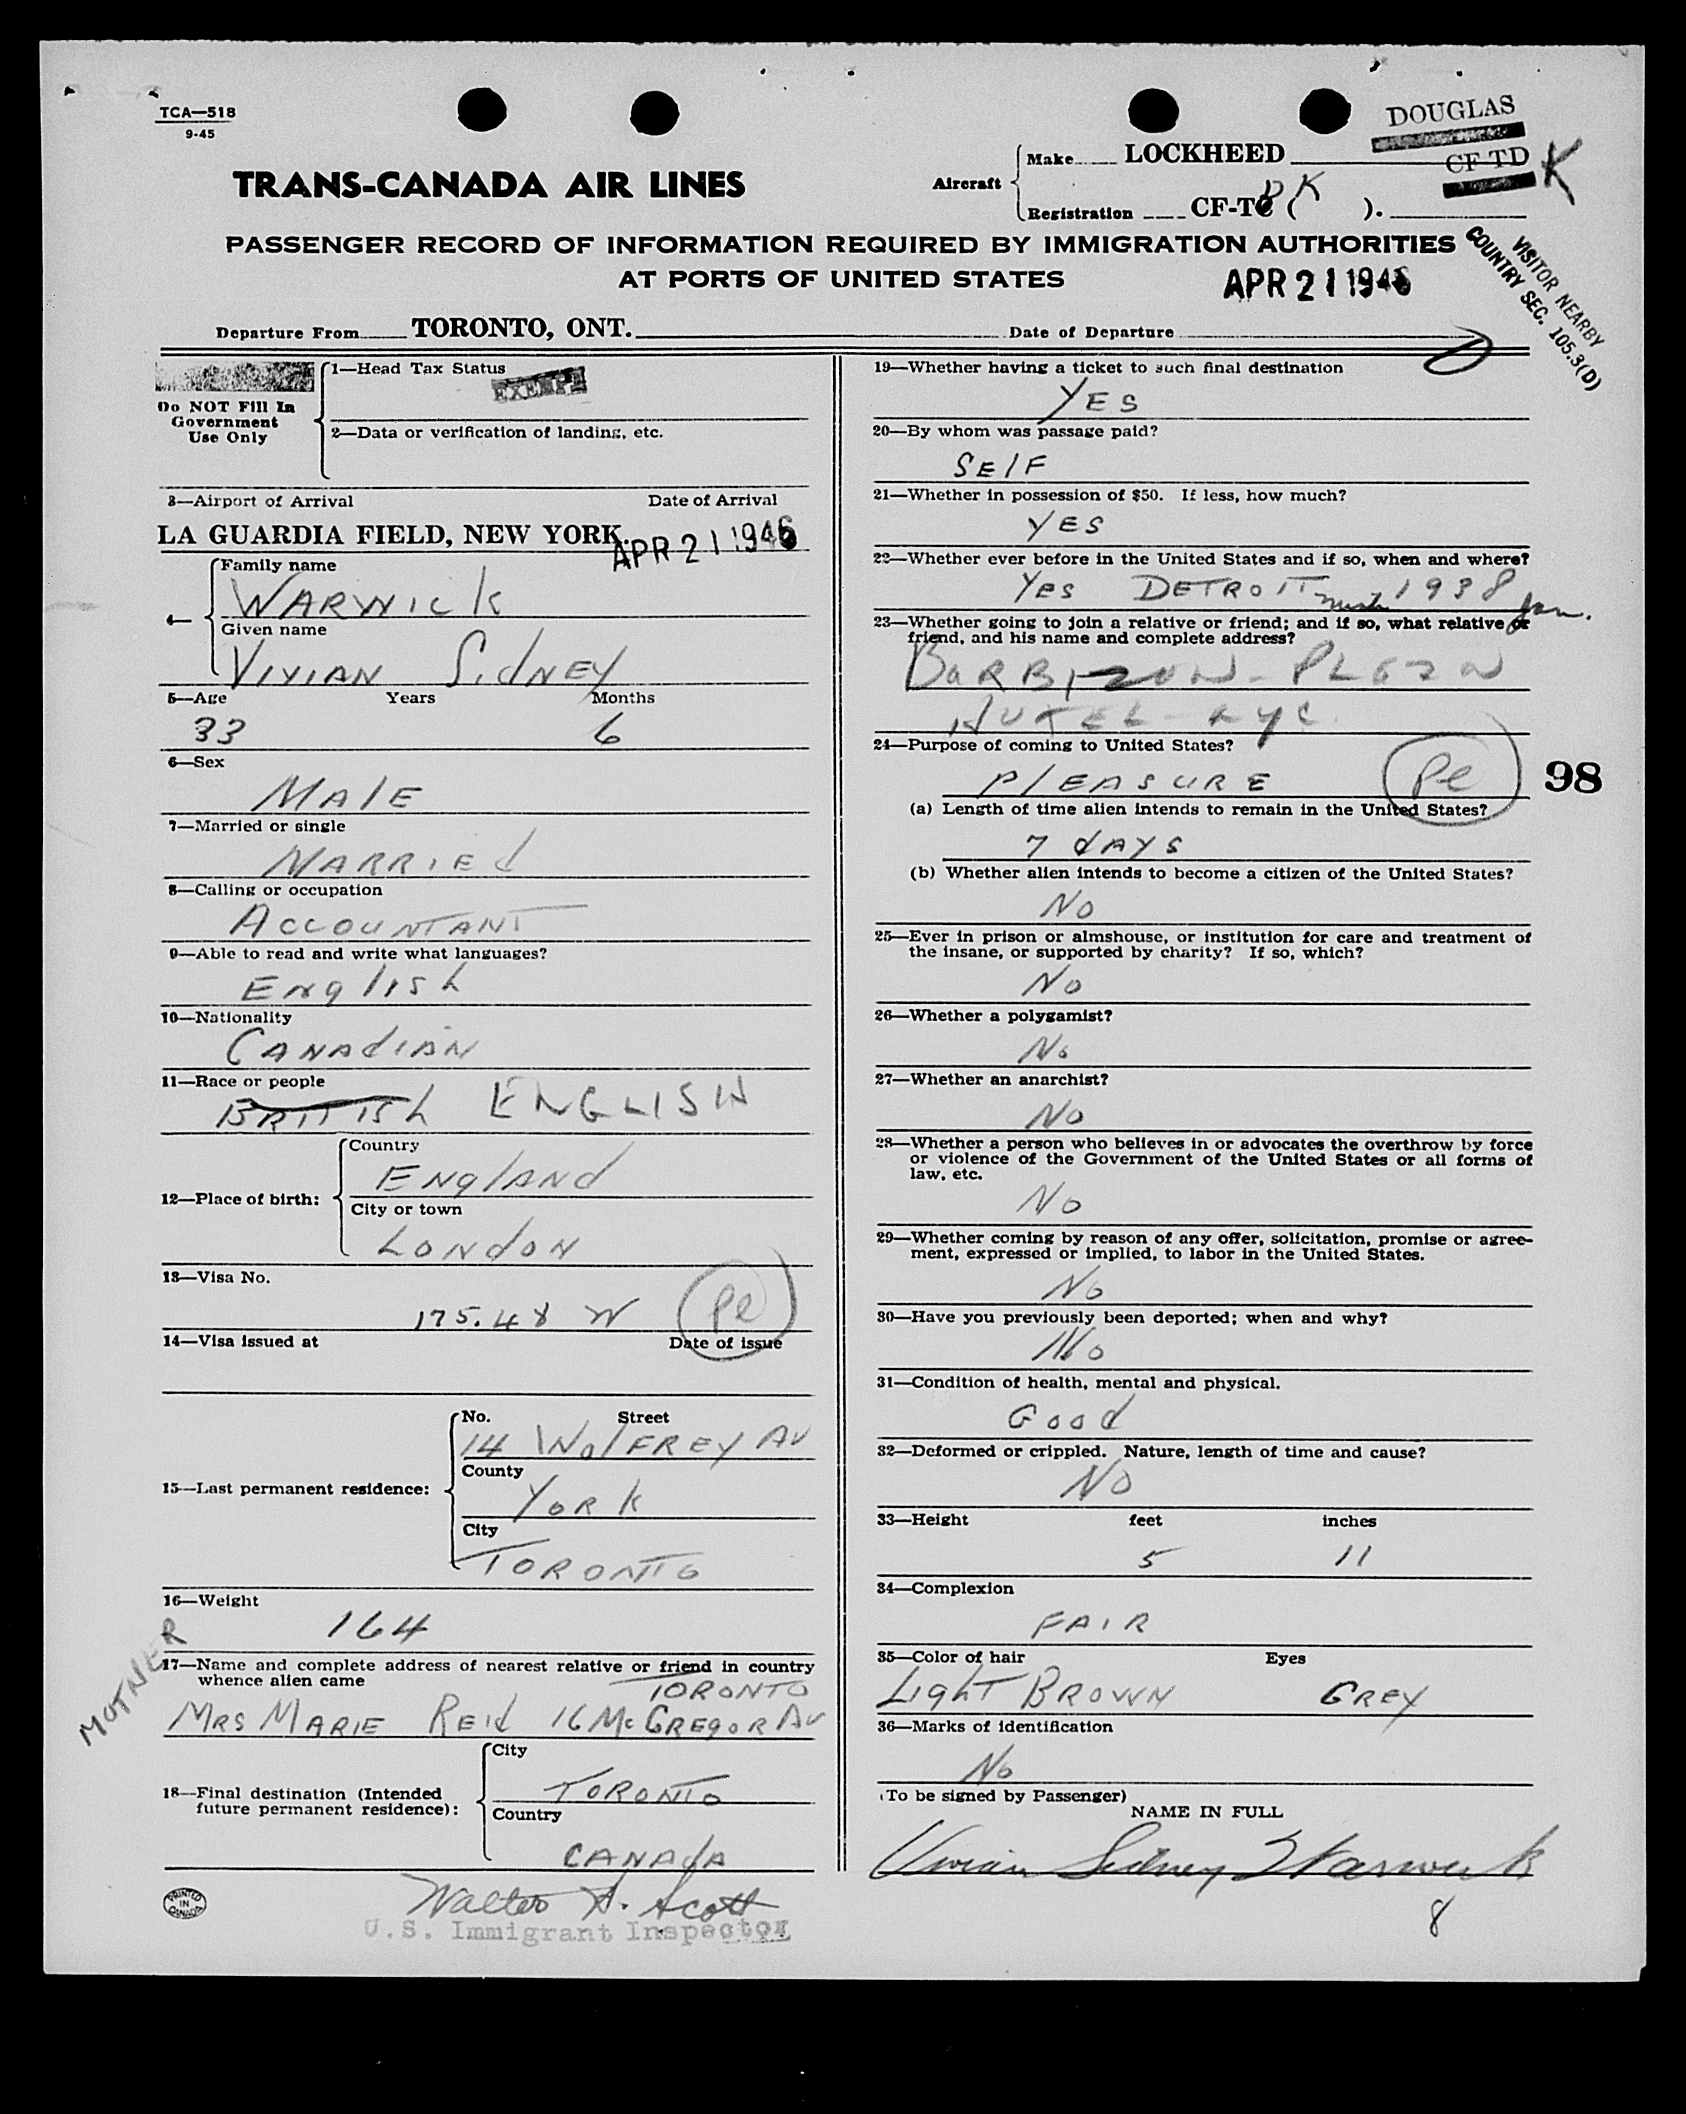 TCA—518
9-45
DOUGLAS
Make LOCKHEED
CF-TD K
TRANS-CANADA AIR LINES
Aircraft
Registration CF-T ( K ).
PASSENGER RECORD OF INFORMATION REQUIRED BY IMMIGRATION AUTHORITIES
AT PORTS OF UNITED STATES
APR 21 1946
VISITOR NEARBY
COUNTRY SEC. 105.3(D)
Departure From TORONTO, ONT. Date of Departure
Do NOT Fill In
Government
Use Only
1—Head Tax Status
EXEMPT
2—Data or verification of landing, etc.
3—Airport of Arrival Date of Arrival
LA GUARDIA FIELD, NEW YORK. APR 21 1946
4—
Family name
WARWICK
Given name
VIVIAN SidNEY
5—Age Years Months
33 6
6—Sex
MAlE
7—Married or single
MARRIEd
8—Calling or occupation
ACCOUNTANT
9—Able to read and write what languages?
English
10—Nationality
CANAdIAN
11—Race or people
BRITISh ENGLISH
12—Place of birth:
Country
ENglANd
City or town
LONdON
13—Visa No.
175.48 W Pl
14—Visa issued at Date of issue
15—Last permanent residence:
No. Street
14 WolFREY AV
County
YORK
City
TORONTO
16—Weight
164
MOTHER
17—Name and complete address of nearest relative or friend in country
whence alien came
TORONTO
MRS MARIE REId 16 McGREgOR AV
18—Final destination (Intended
future permanent residence):
City
TORONTO
Country
CANAdA
Walter A. Scott
U.S. Immigrant Inspector
PRINTED
IN
CANADA
19—Whether having a ticket to such final destination
YES
20—By whom was passage paid?
SElF
21—Whether in possession of $50. If less, how much?
YES
22—Whether ever before in the United States and if so, when and where?
Yes DETROIT 1938 Jan.
23—Whether going to join a relative or friend; and if so, what relative or
friend, and his name and complete address?
BARBIZON-PLAZA
HOTEL NYC
24—Purpose of coming to United States?
PlEASURE Pl
98
(a) Length of time alien intends to remain in the United States?
7 dAYS
(b) Whether alien intends to become a citizen of the United States?
No
25—Ever in prison or almshouse, or institution for care and treatment of
the insane, or supported by charity? If so, which?
No
26—Whether a polygamist?
No
27—Whether an anarchist?
No
28—Whether a person who believes in or advocates the overthrow by force
or violence of the Government of the United States or all forms of
law, etc.
No
29—Whether coming by reason of any offer, solicitation, promise or agree-
ment, expressed or implied, to labor in the United States.
No
30—Have you previously been deported; when and why?
No
31—Condition of health, mental and physical.
Good
32—Deformed or crippled. Nature, length of time and cause?
NO
33—Height feet inches
5 11
34—Complexion
FAIR
35—Color of hair Eyes
LighT BROWN GREY
36—Marks of identification
No
(To be signed by Passenger)
NAME IN FULL
Vivian Sidney Warwick
8